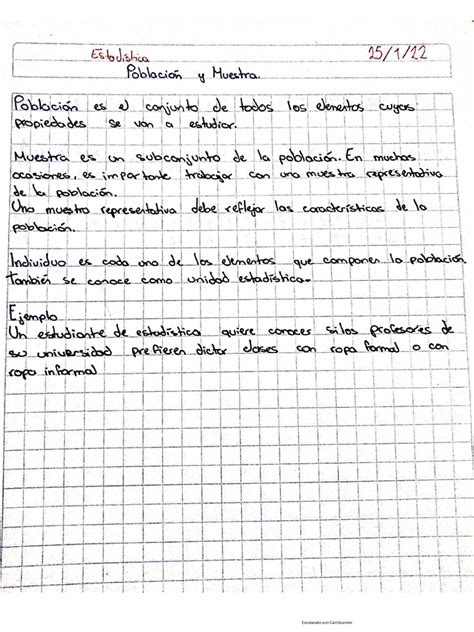 Estadística 25/1/22
Población y Muestra.
Población es el conjunto de todos los elementos cuyas
propiedades se van a estudiar.
Muestra es un subconjunto de la población. En muchas
ocasiones, es importante trabajar con una muestra representativa
de la población.
Una muestra representativa debe reflejar las características de la
población.
Individuo es cada uno de los elementos que componen la población.
También se conoce como unidad estadística.
Ejemplo
Un estudiante de estadística quiere conocer si los profesores de
su universidad prefieren dictar clases con ropa formal o con
ropa informal
Escaneado con CamScanner